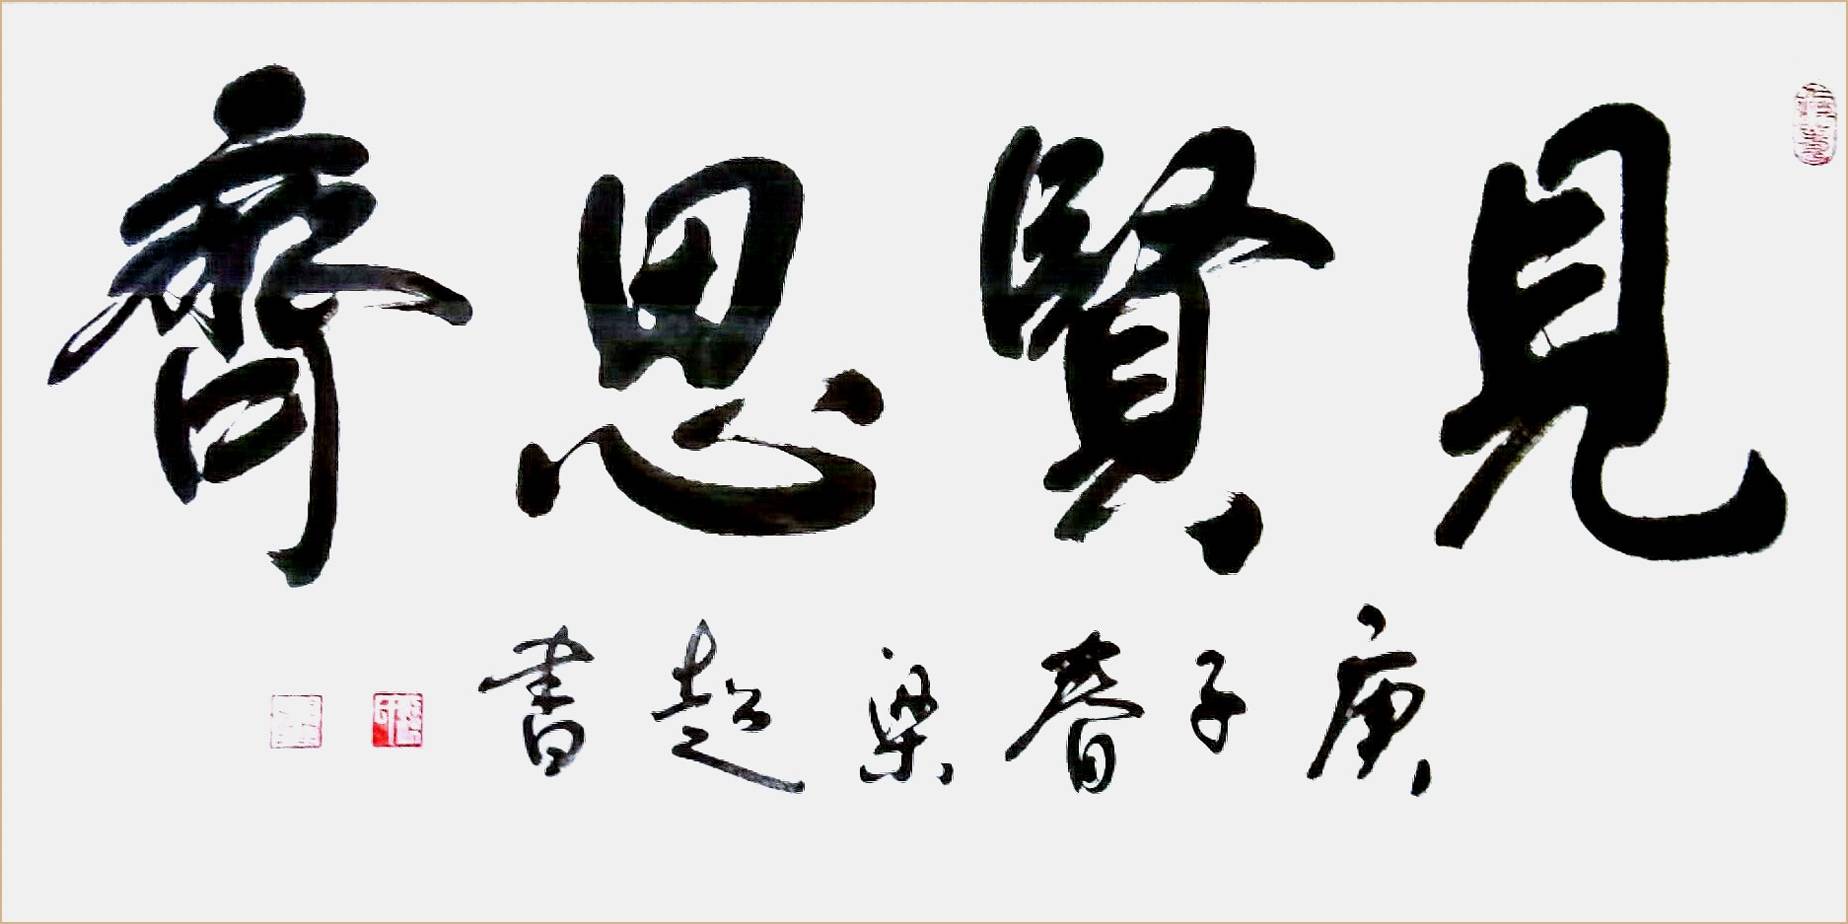 見賢思齊
庚子春梁超書